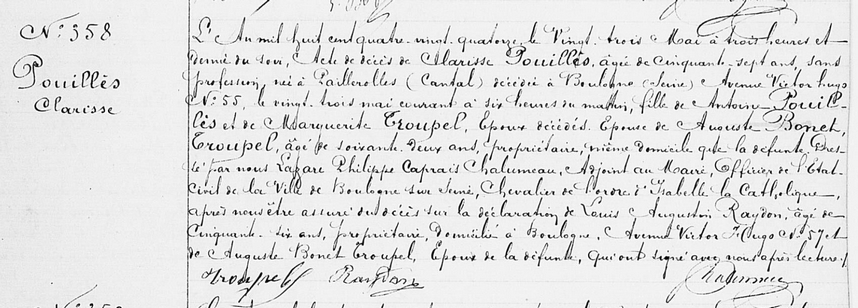 N° 358
Pouillès
Clarisse
L'An mil huit cent quatre-vingt-quatorze, le Vingt-trois Mai à trois heures et
demie du soir, Acte de décès de Clarisse Pouillès, âgée de Cinquante-sept ans, sans
profession, née à Paillerolles (Cantal) décédée à Boulogne (Seine) Avenue Victor hugo
N° 55, le vingt-trois mai courant à six heures du matin, fille de Antoine Pouil-
lès et de Marguerite Troupel, Epoux décédés. Epouse de Auguste Bonet,
Troupel, âgé de soixante-deux ans, propriétaire, même domicile que la défunte. Dres-
sé par nous Lazare Philippe Caprais Chalumeau, Adjoint au Maire, Officier de l'Etat-
civil de la Ville de Boulogne sur Seine, Chevalier de l'ordre d'Isabelle la Catholique,
après nous être assuré du décès sur la déclaration de Louis Augustin Raydon, âgé de
Cinquante-six ans, propriétaire, domicilié à Boulogne, Avenue Victor Hugo N° 57 et
de Auguste Bonet Troupel, Epoux de la défunte, qui ont signé avec nous après lecture./.
Troupel B Raydon